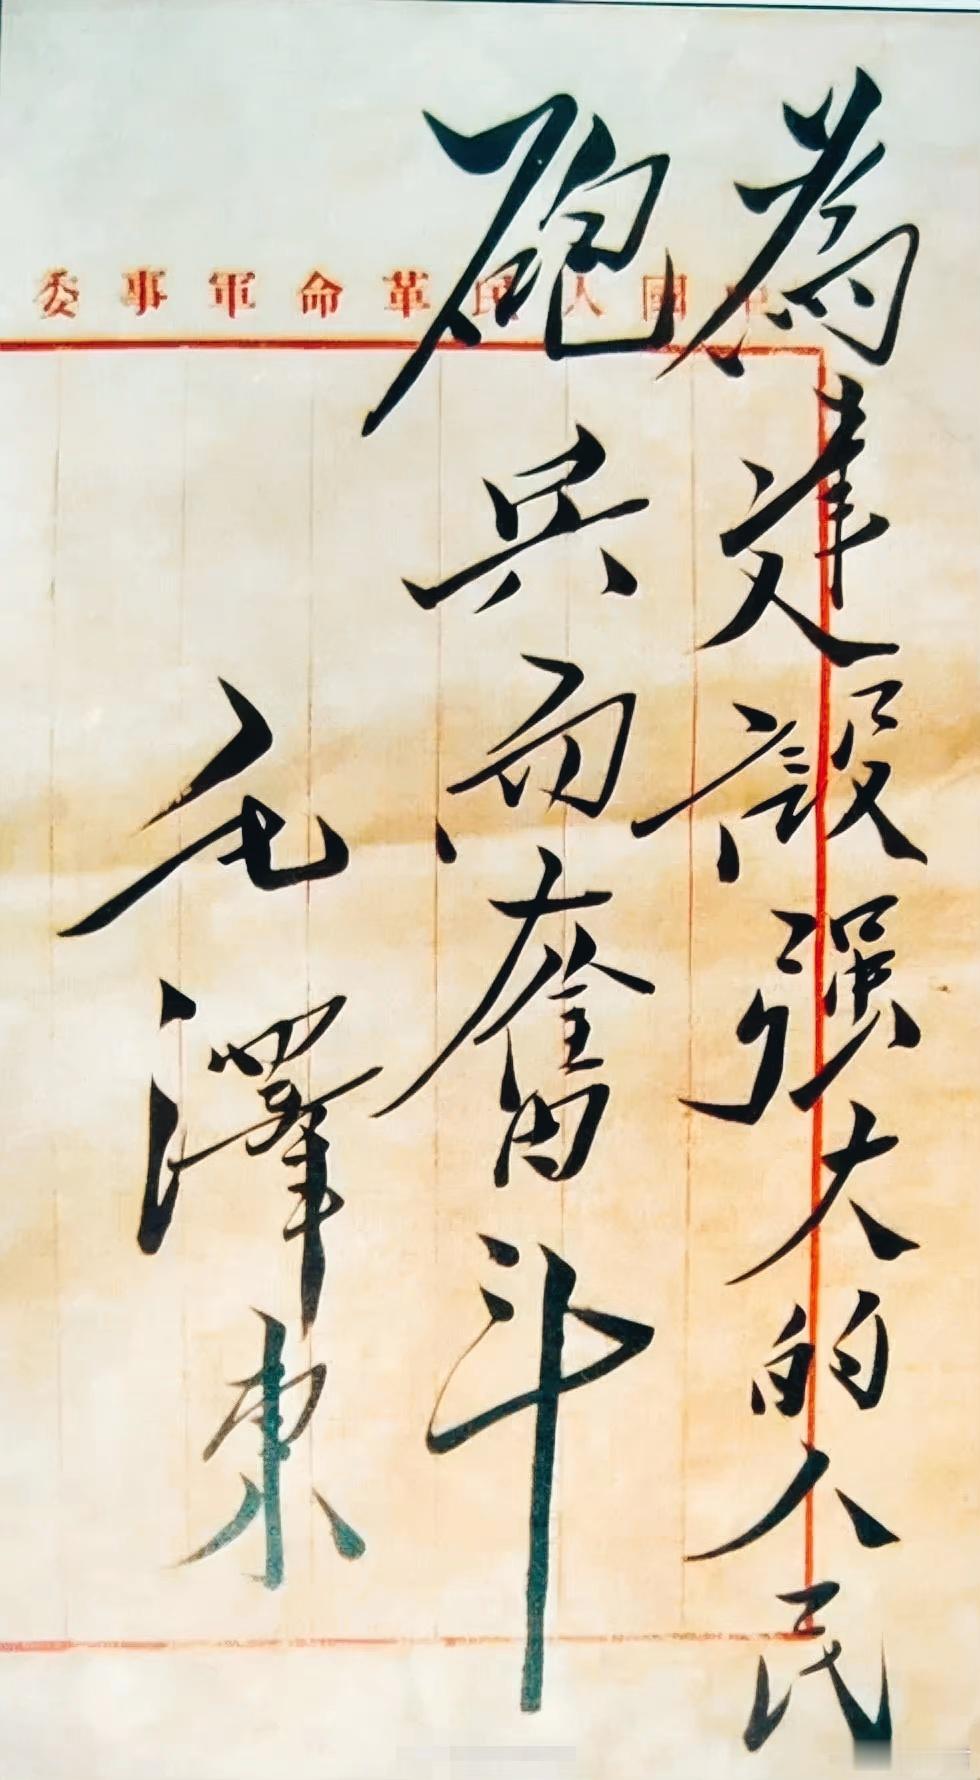 為建設强大的人民
砲兵而奮斗
毛澤東
中國人民革命軍事委